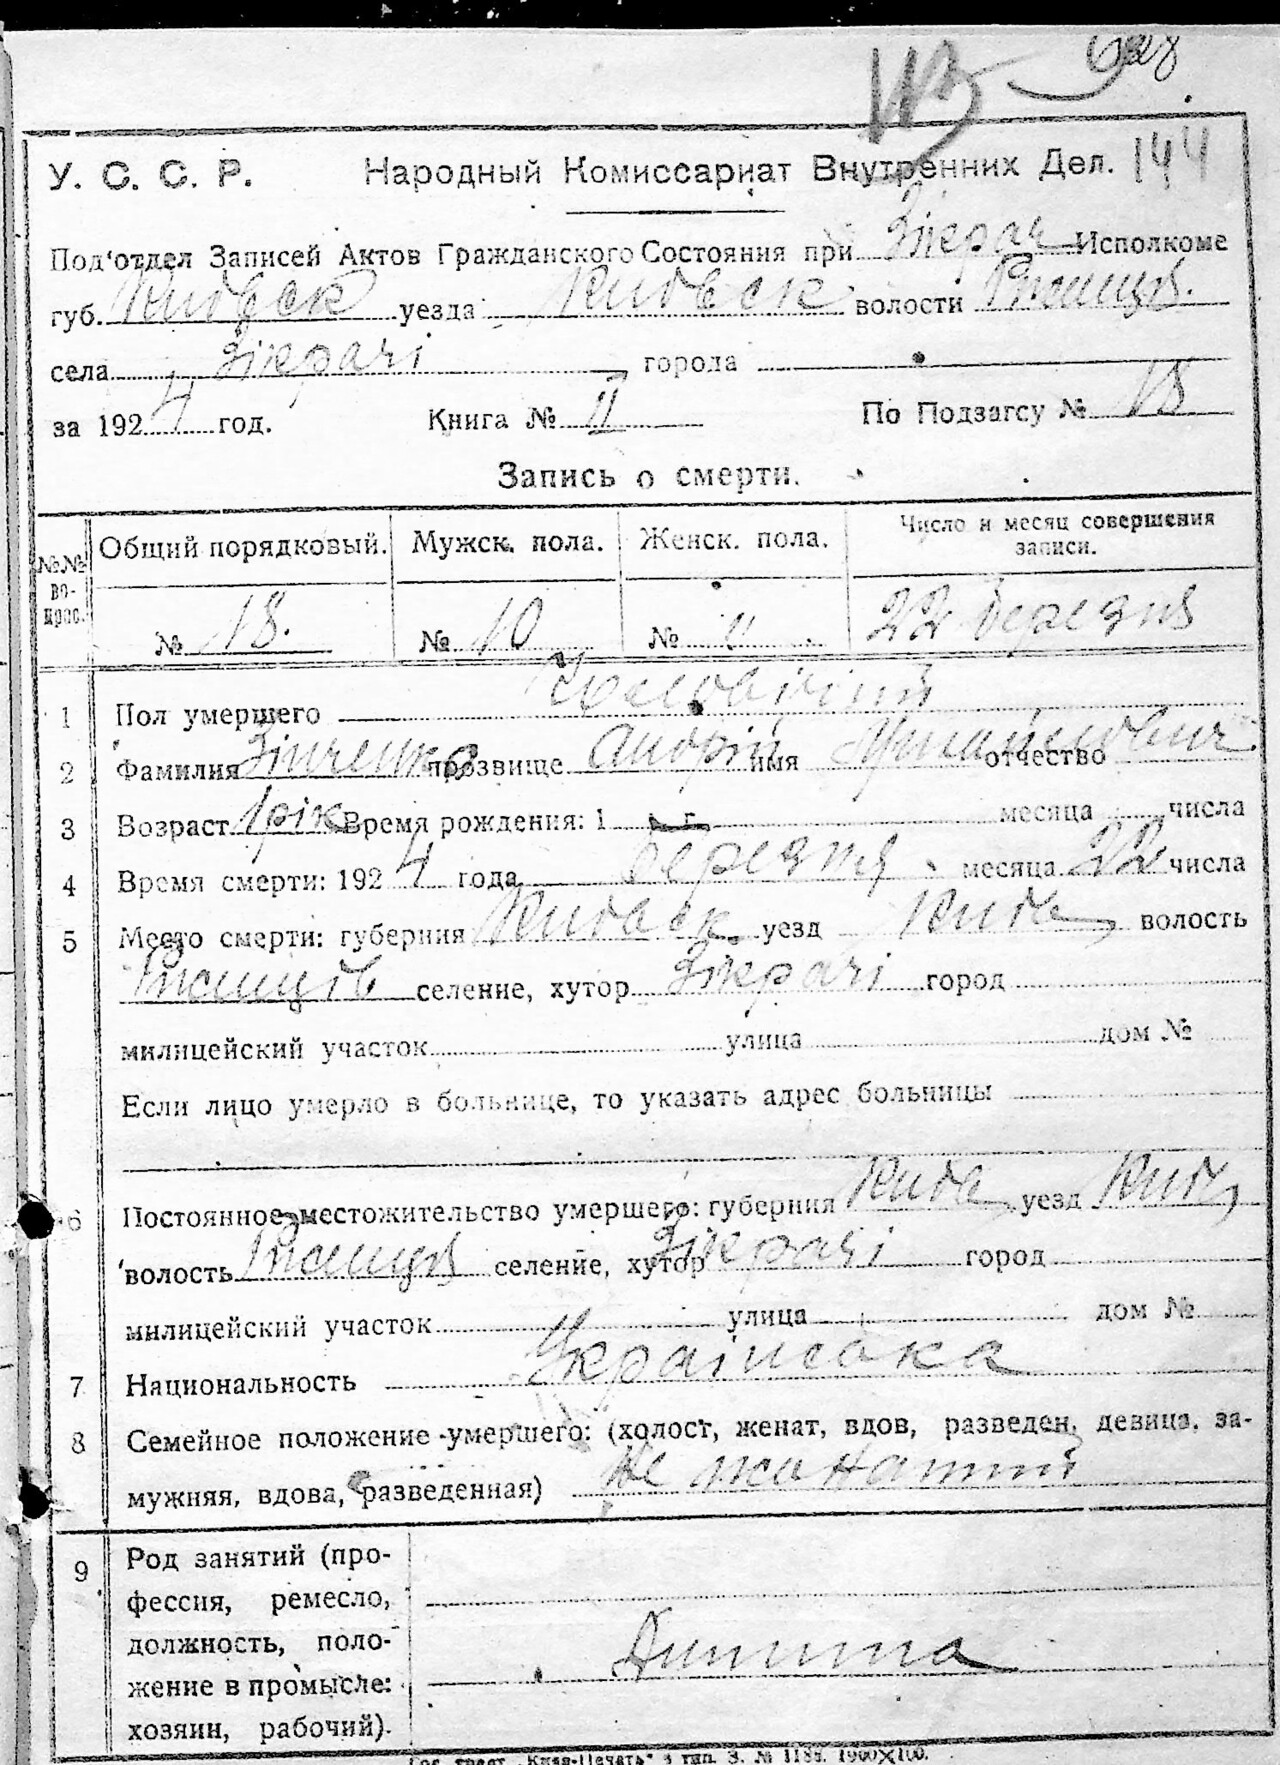 144
У. С. С. Р. Народный Комиссариат Внутренних Дел.
Под'отдел Записей Актов Гражданского Состояния при Зікрач Исполкоме
губ. Київськ уезда Київськ волости Ржищів.
села Зікрачі города
за 1924 год. Книга № II По Подзагсу № 18
Запись о смерти.
№№ во- прос. Общий порядковый. Мужск. пола. Женск. пола. Число и месяц совершения записи.
№ 18. № 10 № " 22 березня
1 Пол умершего Чоловічий
2 Фамилия Зінченко прозвище Андрій имя отчество
3 Возраст 1 рік Время рождения: 1 г. месяца числа
4 Время смерти: 1924 года березня месяца 22 числа
5 Место смерти: губерния Київськ. уезд Київ волость
Ржищів селение, хутор Зікрачі город
милицейский участок улица дом №
Если лицо умерло в больнице, то указать адрес больницы
6 Постоянное местожительство умершего: губерния Київ уезд Київ
волость Ржищів селение, хутор Зікрачі город
милицейский участок улица дом №
7 Национальность Українська
8 Семейное положение умершего: (холост, женат, вдов, разведен, девица, за-
мужняя, вдова, разведенная) Не жонатий
9 Род занятий (про-
фессия, ремесло,
должность, поло-
жение в промысле:
хозяин, рабочий).
Дитина
Гос. трест „Киев-Печать" 3 тип. З. № 1188. 1900×100.